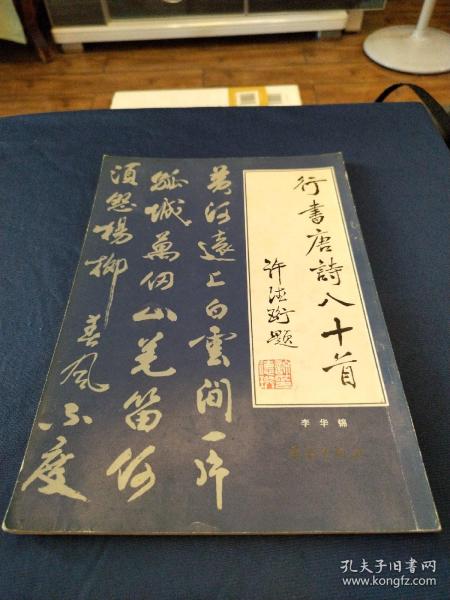 行書唐詩八十首
許德珩題
李华锦
黃河遠上白雲間一片
孤城萬仞山羌笛何
須怨楊柳春風不度
孔夫子旧书网
www.kongfz.com